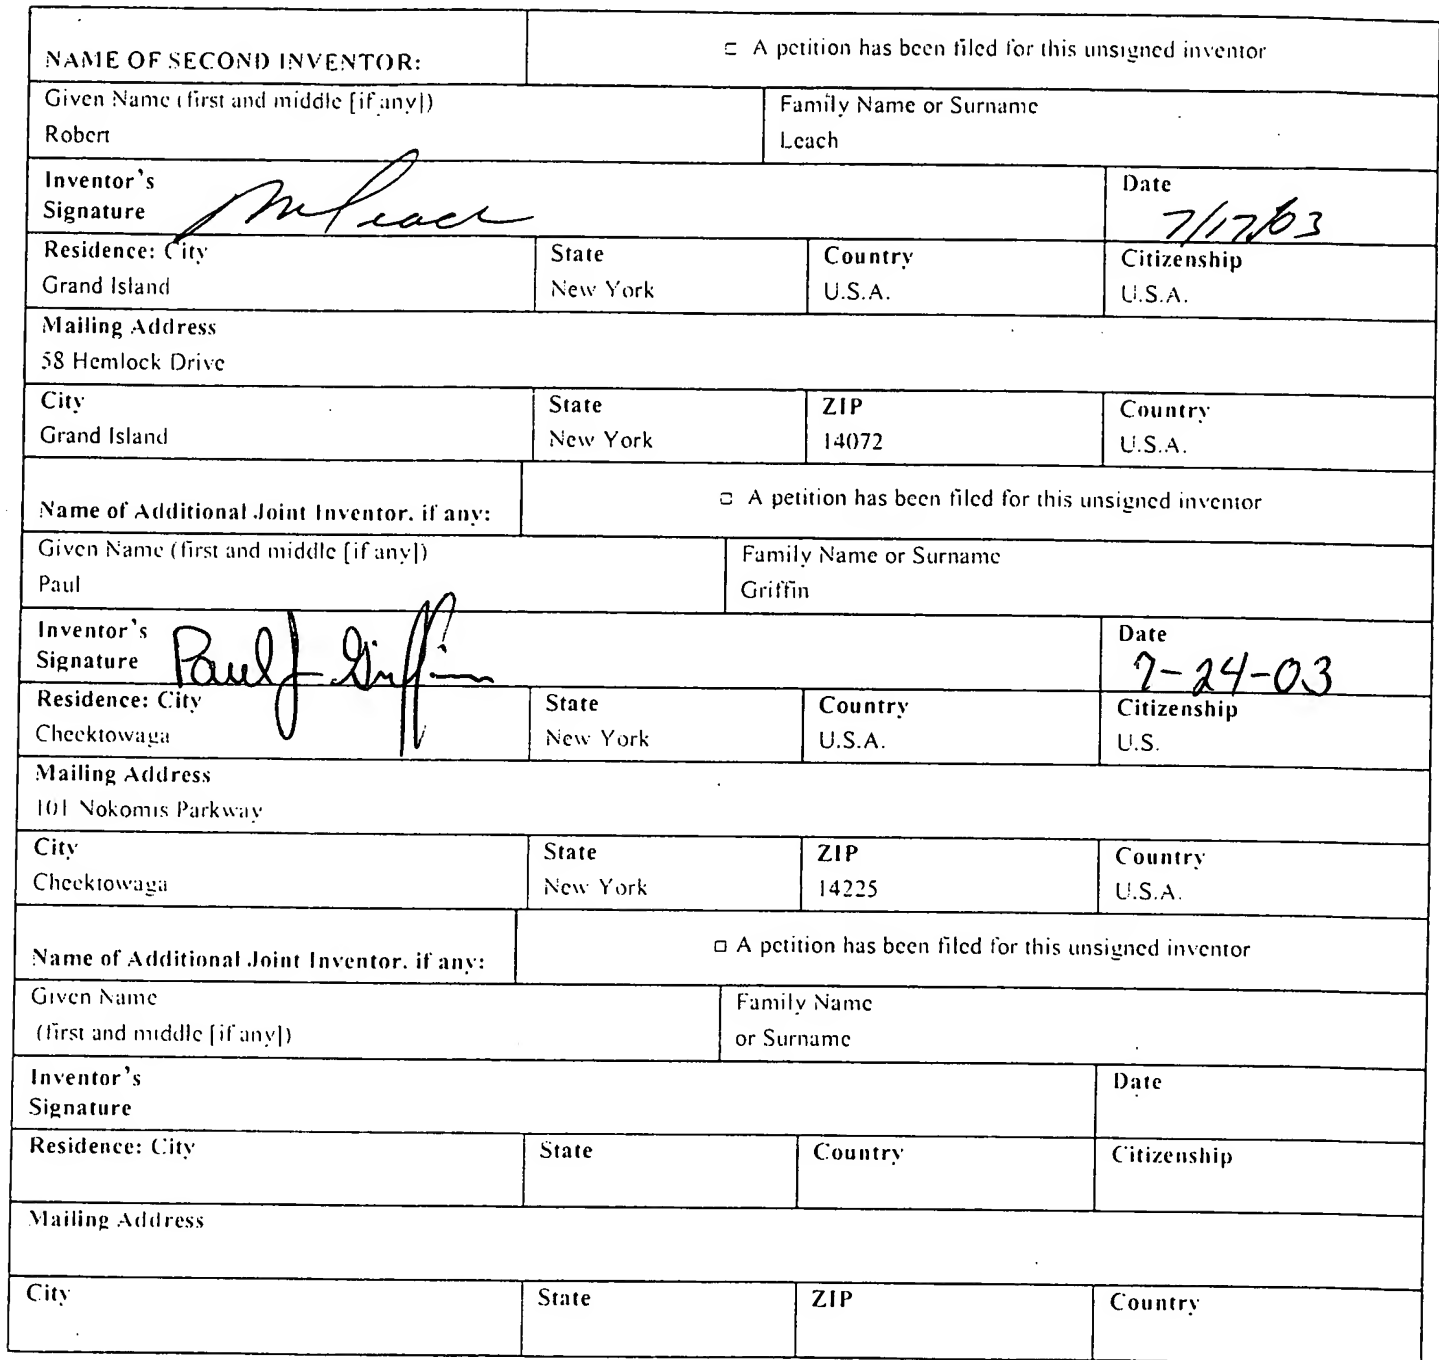 NAME OF SECOND INVENTOR:
A petition has been filed for this unsigned inventor
Given Name (first and middle [if any])
Family Name or Surname
Robert
Leach
Inventor's
Signature
Date
7/17/03
Residence: City
State
Country
Citizenship
Grand Island
New York
U.S.A.
U.S.A.
Mailing Address
58 Hemlock Drive
City
State
ZIP
Country
Grand Island
New York
14072
U.S.A.
Name of Additional Joint Inventor, if any:
A petition has been filed for this unsigned inventor
Given Name (first and middle [if any])
Family Name or Surname
Paul
Griffin
Inventor's
Signature
Paul J Griffin
Date
7-24-03
Residence: City
State
Country
Citizenship
Cheektowaga
New York
U.S.A.
U.S.
Mailing Address
101 Nokomis Parkway
City
State
ZIP
Country
Cheektowaga
New York
14225
U.S.A.
Name of Additional Joint Inventor, if any:
A petition has been filed for this unsigned inventor
Given Name
(first and middle [if any])
Family Name
or Surname
Inventor's
Signature
Date
Residence: City
State
Country
Citizenship
Mailing Address
City
State
ZIP
Country